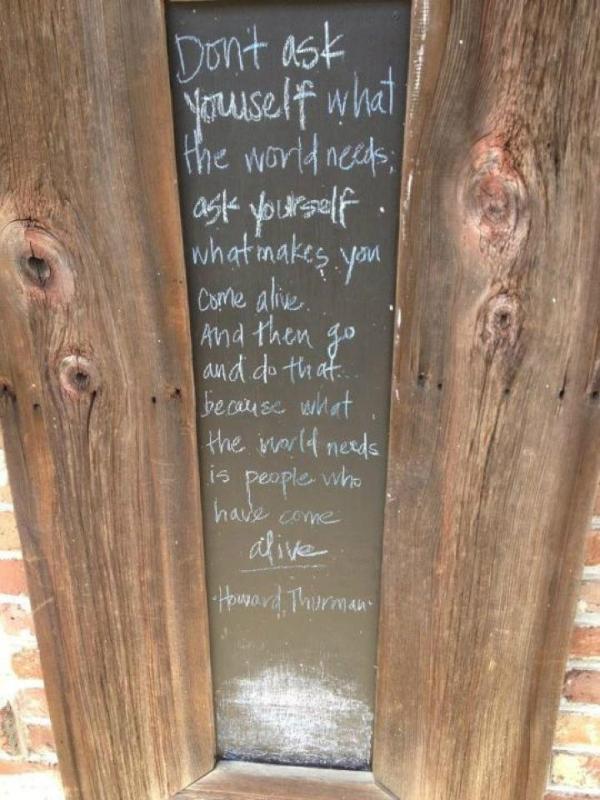 Don't ask
youself what
the world needs;
ask yourself
what makes you
come alive.
And then go
and do that...
because what
the world needs
is people who
have come
alive
-Howard Thurman-